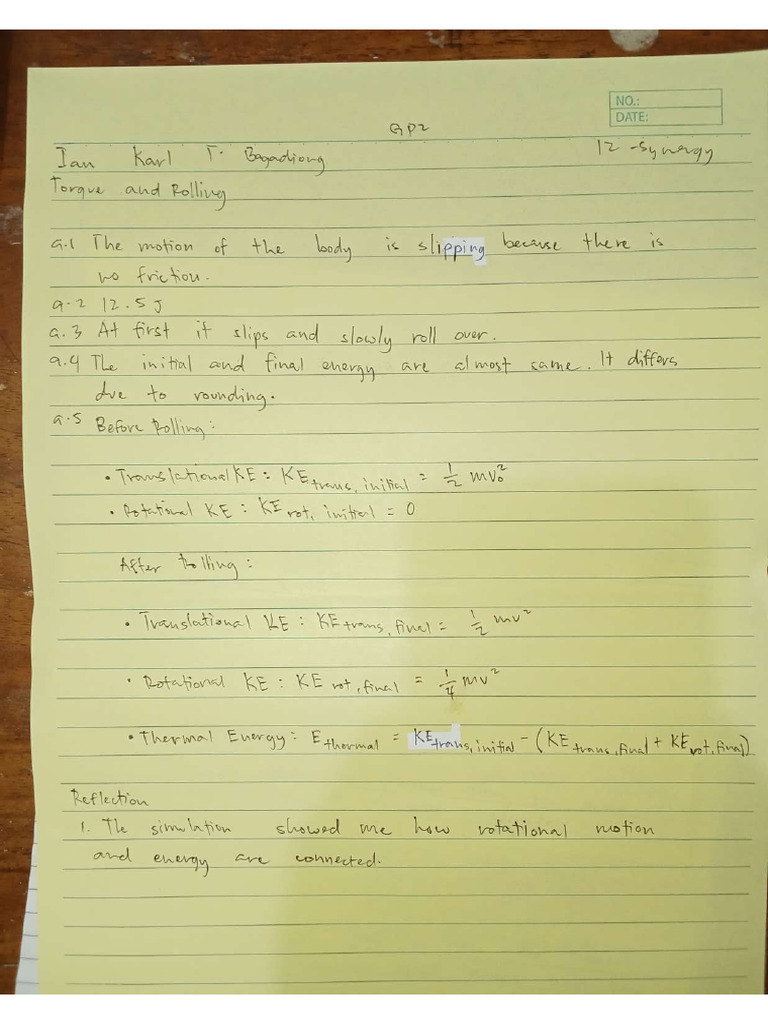 NO.:
DATE:
GP2
Ian Karl T. Bagadiong 12-synergy
Torque and Rolling
a.1 The motion of the body is slipping because there is
no friction.
a.2 12.5 J
a.3 At first it slips and slowly roll over.
a.4 The initial and final energy are almost same. It differs
due to rounding.
a.5 Before Rolling:
• Translational KE: KE trans, initial = 1/2 mv₀²
• Rotational KE: KE rot, initial = 0
After Rolling:
• Translational KE: KE trans, final = 1/2 mv²
• Rotational KE: KE rot, final = 1/4 mv²
• Thermal Energy: E thermal = KE trans, initial - (KE trans, final + KE rot, final)
Reflection
1. The simulation showed me how rotational motion
and energy are connected.